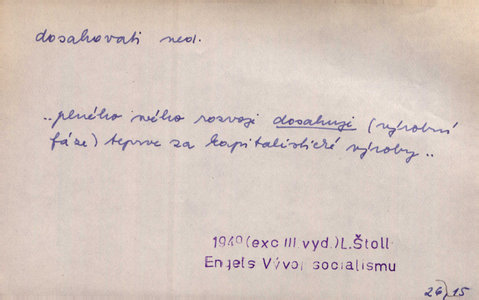 dosahovati ned.
„plného svého rozvoje dosahují (výrobní
fáze) teprve za kapitalistické výroby„
1949 (exc III. vyd.) L. Štoll
Engels Vývoj socialismu
26, 15